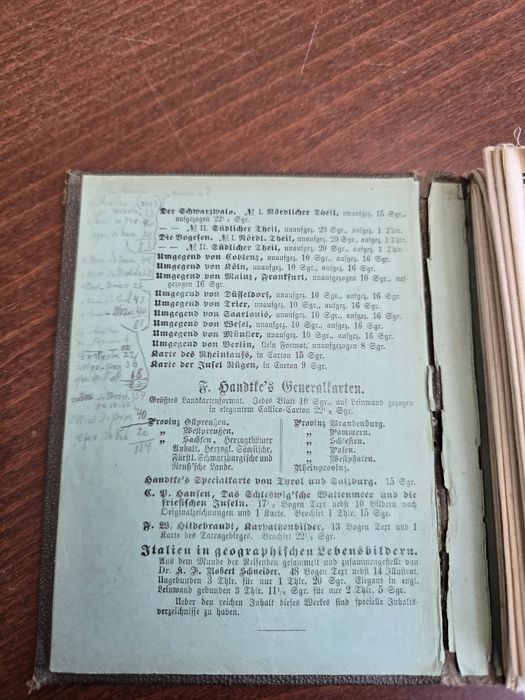 Der Schwarzwald. № I. Nördlicher Theil, unaufgez. 15 Sgr.,
aufgezogen 22½ Sgr.
— — № II. Südlicher Theil, unaufgez. 20 Sgr., aufgez. 1 Thlr.
Die Vogesen. № I. Nördl. Theil, unaufgez. 20 Sgr., aufgez. 1 Thlr.
— — № II. Südlicher Theil, unaufgez. 20 Sgr., aufgez. 1 Thlr.
Umgegend von Coblenz, unaufgez. 10 Sgr., aufgez. 16 Sgr.
Umgegend von Köln, unaufgez. 10 Sgr., aufgez. 16 Sgr.
Umgegend von Mainz, Frankfurt, unaufgezogen 10 Sgr., auf-
gezogen 16 Sgr.
Umgegend von Düsseldorf, unaufgez. 10 Sgr., aufgez. 16 Sgr.
Umgegend von Trier, unaufgez. 10 Sgr., aufgez. 16 Sgr.
Umgegend von Saarlouis, unaufgez. 10 Sgr., aufgez. 16 Sgr.
Umgegend von Wesel, unaufgez. 10 Sgr., aufgez. 16 Sgr.
Umgegend von Münster, unaufgez. 10 Sgr., aufgez. 16 Sgr.
Umgegend von Berlin, klein Format, unaufgezogen 8 Sgr.
Karte des Rheinlaufs, in Carton 15 Sgr.
Karte der Insel Rügen, in Carton 9 Sgr.
F. Handtke's Generalkarten.
Größtes Landkartenformat. Jedes Blatt 10 Sgr., auf Leinwand gezogen
in elegantem Callico-Carton 22½ Sgr.
Provinz Ostpreußen.
„ Westpreußen.
„ Sachsen, Herzogthümer
Anhalt, Herzogl. Sächsische,
Fürstl. Schwarzburgische und
Reuß'sche Lande.
Provinz Brandenburg.
„ Pommern.
„ Schlesien.
„ Posen.
„ Westphalen.
Rheinprovinz.
Handtke's Specialkarte von Tyrol und Salzburg. 15 Sgr.
C. P. Hansen, Das Schleswig'sche Wattenmeer und die
friesischen Inseln. 17½ Bogen Text nebst 10 Bildern nach
Originalzeichnungen und 1 Karte. Brochirt 1 Thlr. 15 Sgr.
F. W. Hildebrandt, Karpathenbilder, 13 Bogen Text und 1
Karte des Tatragebirges. Brochirt 22½ Sgr.
Italien in geographischen Lebensbildern.
Aus dem Munde der Reisenden gesammelt und zusammengestellt von
Dr. K. F. Robert Schneider. 48 Bogen Text nebst 14 Illustrat.
Ungebunden 3 Thlr. für nur 1 Thlr. 20 Sgr. Elegant in engl.
Leinwand gebunden 3 Thlr. 11¼ Sgr. für nur 2 Thlr. 5 Sgr.
Ueber den reichen Inhalt dieses Werkes sind specielle Inhalts-
verzeichnisse zu haben.